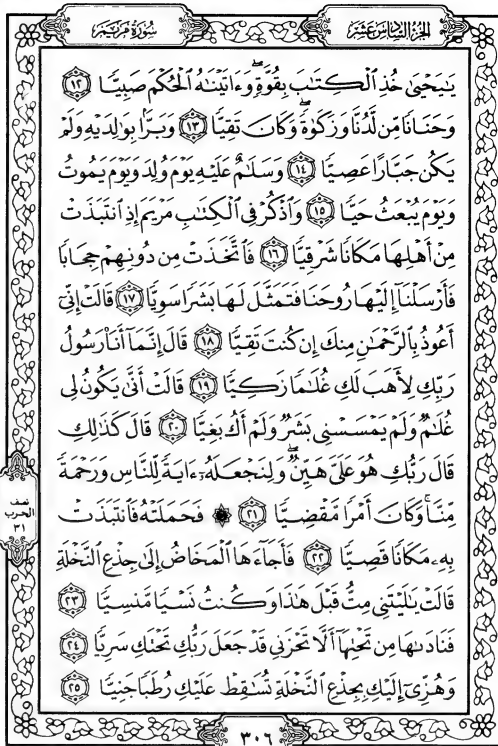 الجزء السادس عشر
سورة مريم
يَـٰيَحْيَىٰ خُذِ ٱلْكِتَـٰبَ بِقُوَّةٍۖ وَءَاتَيْنَـٰهُ ٱلْحُكْمَ صَبِيًّا ١٢
وَحَنَانًا مِّن لَّدُنَّا وَزَكَوٰةًۖ وَكَانَ تَقِيًّا ١٣ وَبَرًّۢا بِوَٰلِدَيْهِ وَلَمْ
يَكُن جَبَّارًا عَصِيًّا ١٤ وَسَلَـٰمٌ عَلَيْهِ يَوْمَ وُلِدَ وَيَوْمَ يَمُوتُ
وَيَوْمَ يُبْعَثُ حَيًّا ١٥ وَٱذْكُرْ فِى ٱلْكِتَـٰبِ مَرْيَمَ إِذِ ٱنتَبَذَتْ
مِنْ أَهْلِهَا مَكَانًا شَرْقِيًّا ١٦ فَٱتَّخَذَتْ مِن دُونِهِمْ حِجَابًا
فَأَرْسَلْنَآ إِلَيْهَا رُوحَنَا فَتَمَثَّلَ لَهَا بَشَرًا سَوِيًّا ١٧ قَالَتْ إِنِّىٓ
أَعُوذُ بِٱلرَّحْمَـٰنِ مِنكَ إِن كُنتَ تَقِيًّا ١٨ قَالَ إِنَّمَآ أَنَا۠ رَسُولُ
رَبِّكِ لِأَهَبَ لَكِ غُلَـٰمًا زَكِيًّا ١٩ قَالَتْ أَنَّىٰ يَكُونُ لِى
غُلَـٰمٌ وَلَمْ يَمْسَسْنِى بَشَرٌ وَلَمْ أَكُ بَغِيًّا ٢٠ قَالَ كَذَٰلِكِ
قَالَ رَبُّكِ هُوَ عَلَىَّ هَيِّنٌۖ وَلِنَجْعَلَهُۥٓ ءَايَةً لِّلنَّاسِ وَرَحْمَةً
مِّنَّاۚ وَكَانَ أَمْرًا مَّقْضِيًّا ٢١ ۞ فَحَمَلَتْهُ فَٱنتَبَذَتْ
بِهِۦ مَكَانًا قَصِيًّا ٢٢ فَأَجَآءَهَا ٱلْمَخَاضُ إِلَىٰ جِذْعِ ٱلنَّخْلَةِ
قَالَتْ يَـٰلَيْتَنِى مِتُّ قَبْلَ هَـٰذَا وَكُنتُ نَسْيًا مَّنسِيًّا ٢٣
فَنَادَىٰهَا مِن تَحْتِهَآ أَلَّا تَحْزَنِى قَدْ جَعَلَ رَبُّكِ تَحْتَكِ سَرِيًّا ٢٤
وَهُزِّىٓ إِلَيْكِ بِجِذْعِ ٱلنَّخْلَةِ تُسَـٰقِطْ عَلَيْكِ رُطَبًا جَنِيًّا ٢٥
نصف
الحزب
٣١
٣٠٦